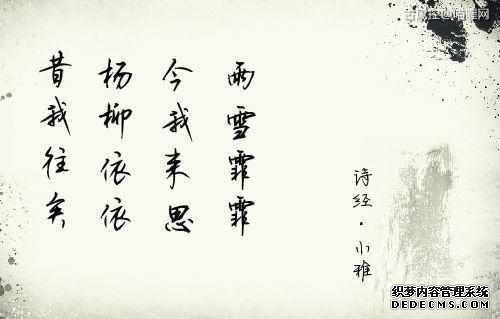 昔我往矣
杨柳依依
今我来思
雨雪霏霏
诗经·小雅
织梦内容管理系统
DEDECMS.COM